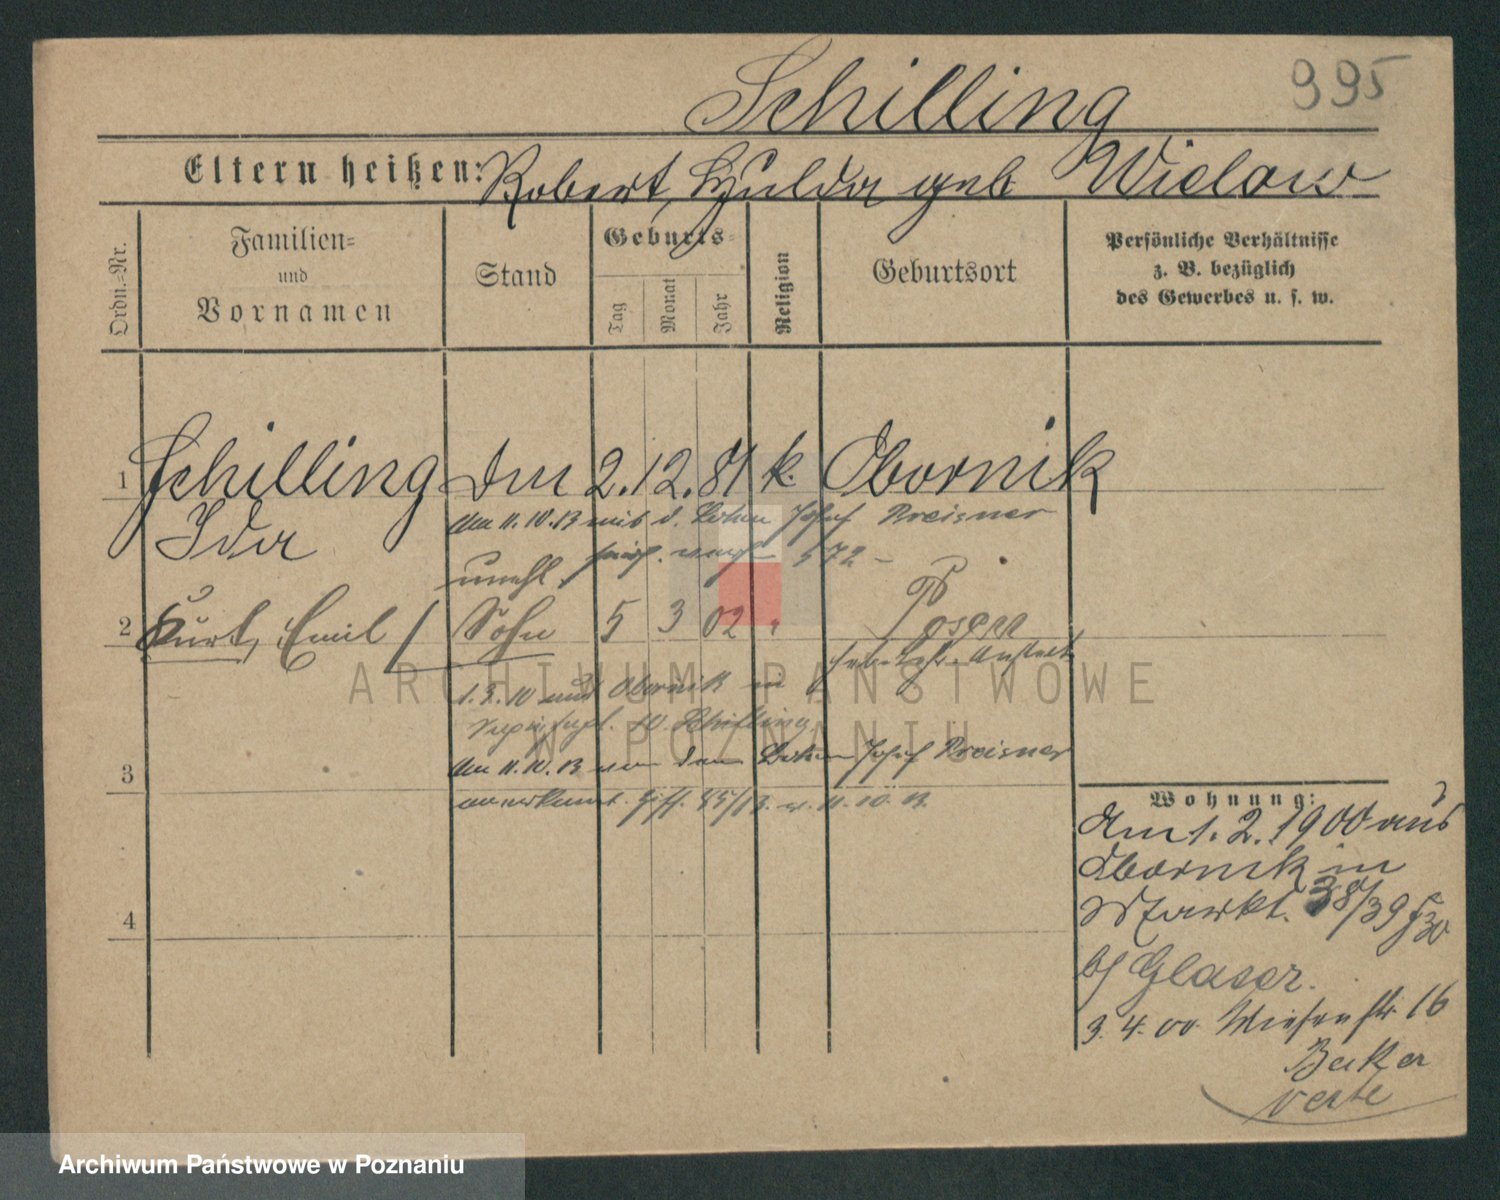 Schilling 995
Eltern heißen: Robert, Hulda geb Wielow
Ordn.-Nr.
Familien-
und
Vornamen
Stand
Geburts-
Tag
Monat
Jahr
Religion
Geburtsort
Persönliche Verhältnisse
z. B. bezüglich
des Gewerbes u. s. w.
1 Schilling Dm 2. 12. 81 k. Obornik
Ida
Am 11.10.13 mit d. Josef Preisner
unehl. 572
2 Kurt, Emil / Sohn 5 3 02 " Posen
Heb. Lehr. Anstalt
1.3.10 nach Obornik
Schilling
3
Am 11.10.13 von dem Josef Preisner
anerkannt. 11.10.13.
4
Wohnung:
Am 1. 2. 1900 aus
Obornik in
Markt. 38/39
b/ Glaser.
3. 4. 00. Wiesenstr. 16
Becker
verte
ARCHIWUM PAŃSTWOWE
W POZNANIU
Archiwum Państwowe w Poznaniu